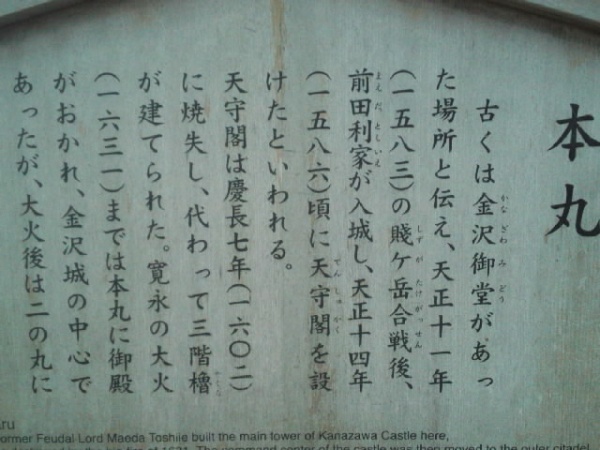 本丸
古くは金沢御堂があっ
た場所と伝え、天正十一年
(一五八三)の賤ケ岳合戦後、
前田利家が入城し、天正十四年
(一五八六)頃に天守閣を設
けたといわれる。
天守閣は慶長七年(一六〇二)
に焼失し、代わって三階櫓
が建てられた。寛永の大火
(一六三一)までは本丸に御殿
がおかれ、金沢城の中心で
あったが、大火後は二の丸に
aru
ormer Feudal Lord Maeda Toshiie built the main tower of Kanazawa Castle here,
of 1631. The command center of the castle was then moved to the outer citadel